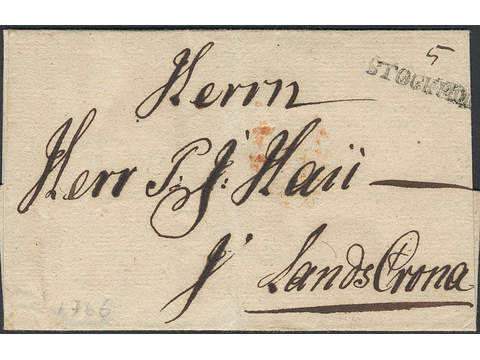 5
STOCKHOLM
Herrn
Herr P: J: Haij
j' LandsCrona
1766